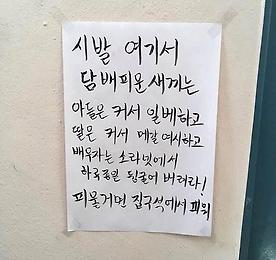 시발 여기서
담배피운새끼는
아들은 커서 일베하고
딸은 커서 메갈 여시하고
배우자는 소라넷에서
하루종일 뒹굴어 버려라!
피물거면 집구석에서 피워